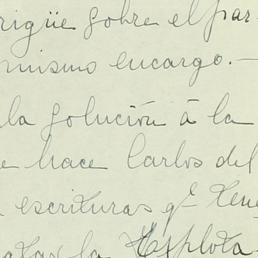 rigüe sobre el par-
mismo encargo.—
la solución á la
e hace Carlos del
escrituras qe tene
la Explota-